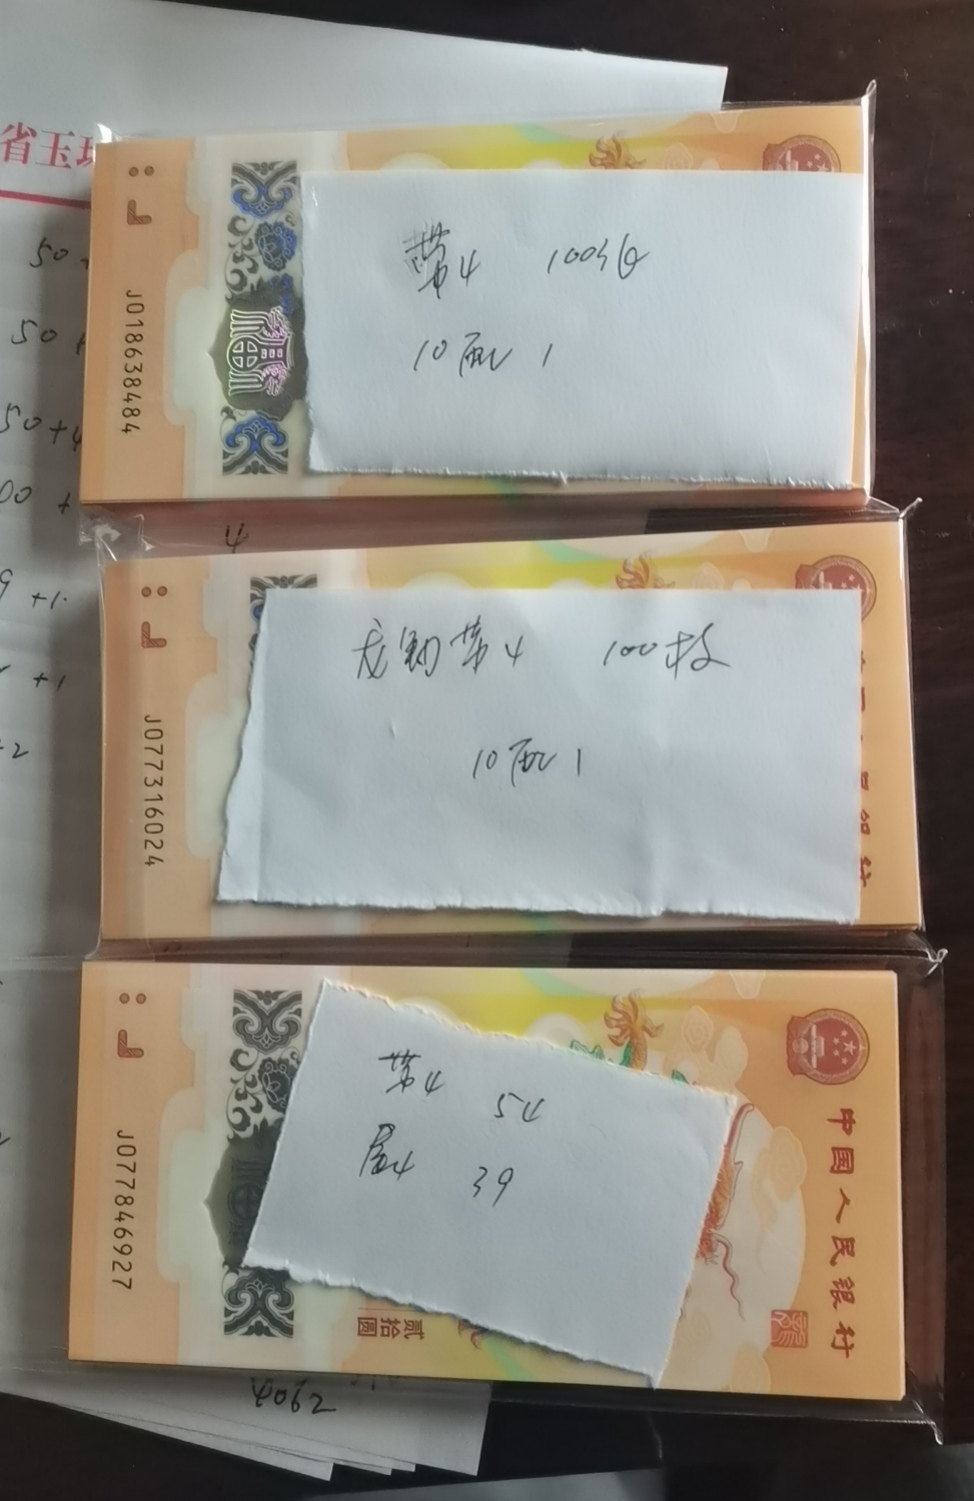 省玉环
50
50
50+4
00 +
9 +1.
+1
2
J018638484
带4 100张
10配1
4
J077316024
龙钞带4 100枚
10配1
J077846927
带4 54
尾4 39
中国人民银行
贰拾圆
4062